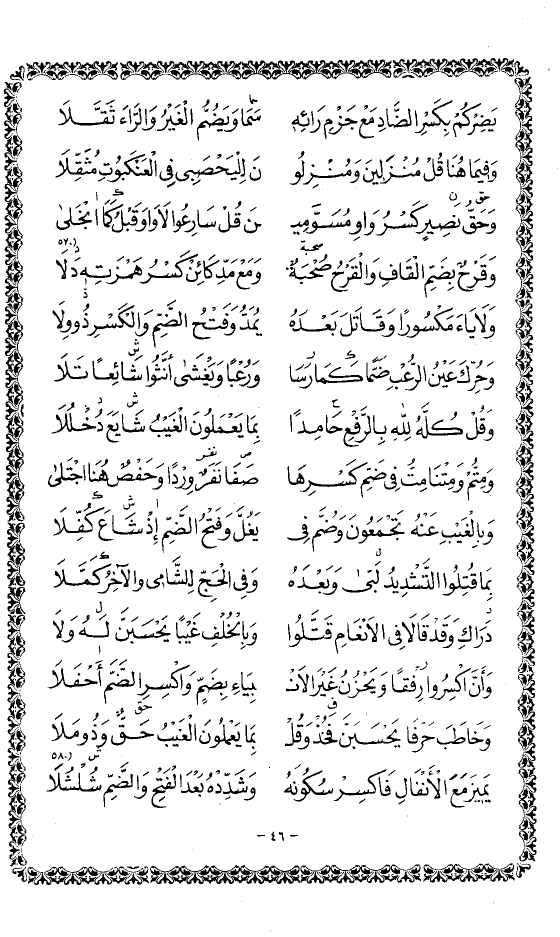 يَضِرْكُمْ بِكَسْرِ الضَّادِ مَعْ جَزْمِ رَائِهِ سَمَا وَيَضُمُّ الْغَيْرُ وَالرَّاءَ ثَقَّلَا
وَفِيمَا هُنَا قُلْ مُنْزَلِينَ وَمُنْزِلُو نَ لِلْيَحْصَبِي فِي الْعَنْكَبُوتِ مُثَقِّلَا
وَحَقُّ نَصِيرٍ كَسْرُ وَاوِ مُسَوِّمِيـ نَ قُلْ سَارِعُوا لَا وَاوَ قَبْلُ كَمَا انْجَلَى
وَقَرْحٌ بِضَمِّ الْقَافِ وَالْقَرْحُ صُحْبَةٌ وَمَعْ مَدِّ كَائِنْ كَسْرُ هَمْزَتِهِ دَلَا
وَلَا يَاءَ مَكْسُورًا وَقَاتَلَ بَعْدَهُ يُمَدُّ وَفَتْحُ الضَّمِّ وَالْكَسْرِ ذُو وِلَا
وَحُرِّكَ عَيْنُ الرُّعْبِ ضَمًّا كَمَا رَسَا وَرُعْبًا وَيَغْشَى أَنَّثُوا شَائِعًا تَلَا
وَقُلْ كُلُّهُ لِلهِ بِالرَّفْعِ حَامِدًا بِمَا يَعْمَلُونَ الْغَيْبُ شَايَعَ دُخْلُلَا
وَمِتُّمْ وَمِتْنَا مِتُّ فِي ضَمِّ كَسْرِهَا صَفَا نَفَرٌ وِرْدًا وَحَفْصٌ هُنَا اجْتَلَى
وَبِالْغَيْبِ عَنْهُ تَجْمَعُونَ وَضُمَّ فِي يَغُلَّ وَفَتْحُ الضَّمِّ إِذْ شَاعَ كُفِّلَا
بِمَا قُتِلُوا التَّشْدِيدُ لَبَّى وَبَعْدَهُ وَفِي الْحَجِّ لِلشَّامِي وَالْآخِرُ كَمَّلَا
دَرَاكِ وَقَدْ قَالَا فِي الْأَنْعَامِ قَتَّلُوا وَبِالْخُلْفِ غَيْبًا يَحْسَبَنَّ لَهُ وَلَا
وَأَنَّ اكْسِرُوا رِفْقًا وَيَحْزُنُ غَيْرَ الْأَنْـ بِيَاءِ بِضَمٍّ وَاكْسِرِ الضَّمَّ أَحْفَلَا
وَخَاطَبَ حَرْفَا يَحْسَبَنَّ فَخُذْ وَقُلْ بِمَا يَعْمَلُونَ الْغَيْبُ حَقٌّ وَذُو مَلَا
يَمِيزَ مَعَ الْأَنْفَالِ فَاكْسِرْ سُكُونَهُ وَشَدِّدْهُ بَعْدَ الْفَتْحِ وَالضَّمِّ شُلْشُلَا
- ٤٦ -